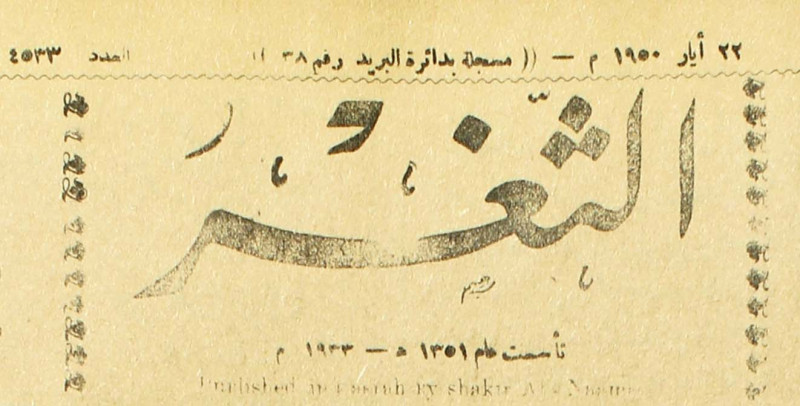 ٢٢ أيار ١٩٥٠ م — (( مسجلة بدائرة البريد رقم ٣٨ )) العدد ٤٥٣٣
الثَّغْر
تأسست عام ١٣٥١ ه — ١٩٣٣ م
Published in by shakir